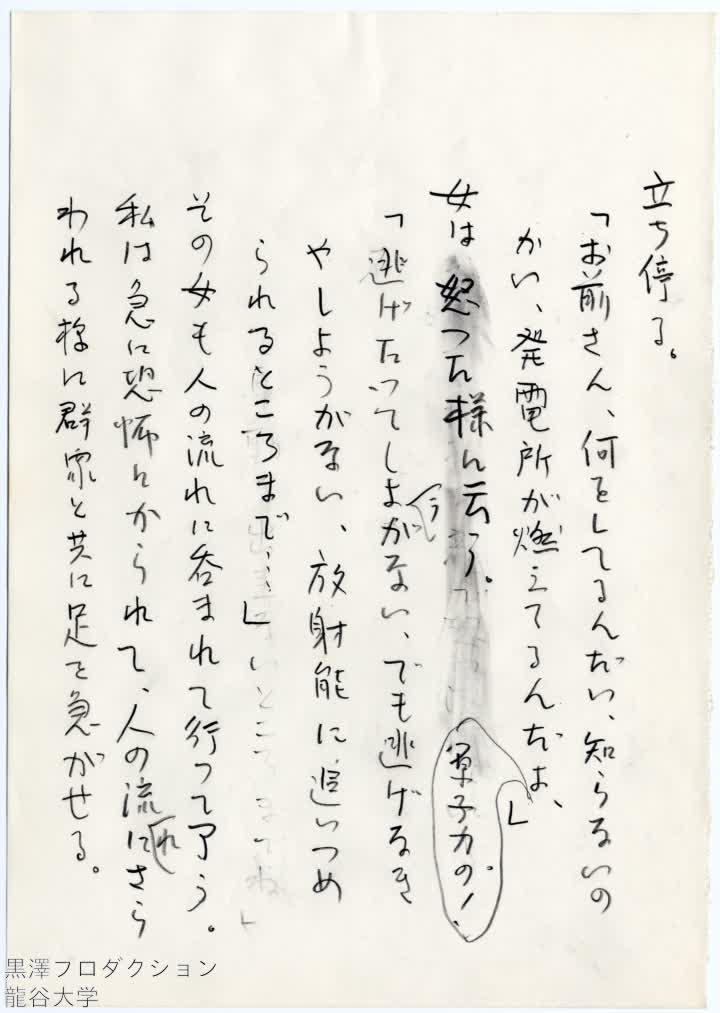 立ち停る。
「お前さん、何をしてるんだい、知らないの
かい、発電所が燃えてるんだよ、原子力の！」
女は怒った様に云う。
「逃げたってしようがない、でも逃げなき
やしようがない、放射能に追いつめ
られるところまで…」
その女も人の流れに呑まれて行って了う。
私は急に恐怖にかられて、人の流れにさら
われる様に群衆と共に足を急がせる。
黒澤プロダクション
龍谷大学